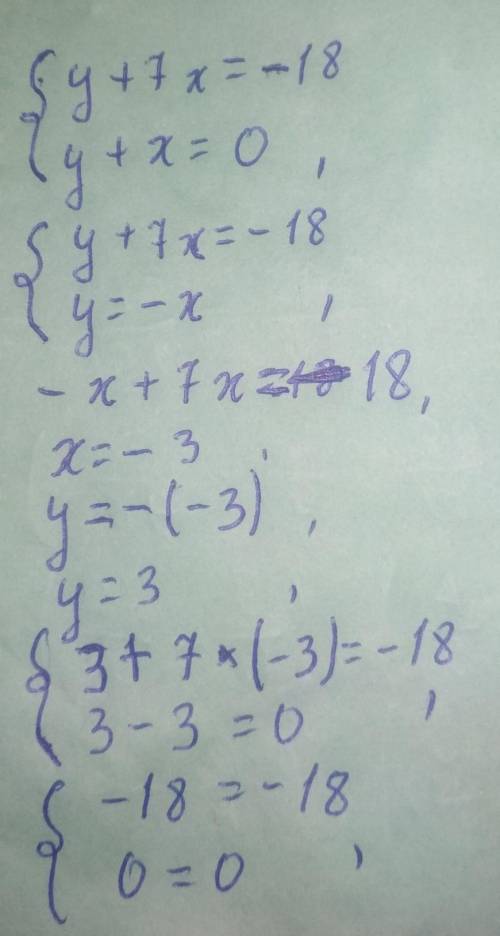 { y + 7x = -18
y + x = 0 ,
{ y + 7x = -18
y = -x ,
- x + 7x = - 18,
x = - 3 ,
y = -(-3) ,
y = 3 ,
{ 3 + 7 × (-3) = -18
3 - 3 = 0 ,
{ -18 = -18
0 = 0 ,